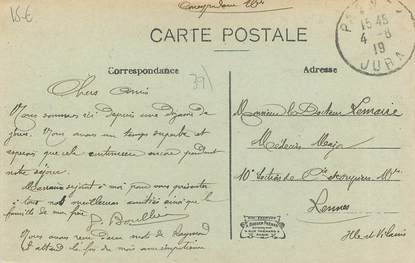 15€
CARTE POSTALE
Correspondance
Adresse
39
15 45
4 - 8
19
JURA
Chers Amis
Nous sommes ici depuis une dizaine de
jours. Nous avons un temps superbe et
espérons que cela continuera encore pendant
notre séjour.
se joint à moi pour vous présenter
à tous nos meilleures amitiés ainsi que la
famille de mon frère
Nous avons reçu mot de Raymond
Il attend la fin du mois
Monsieur le Docteur Lemaire
Médecin Major
10e
Rennes
Ille et Vilaine